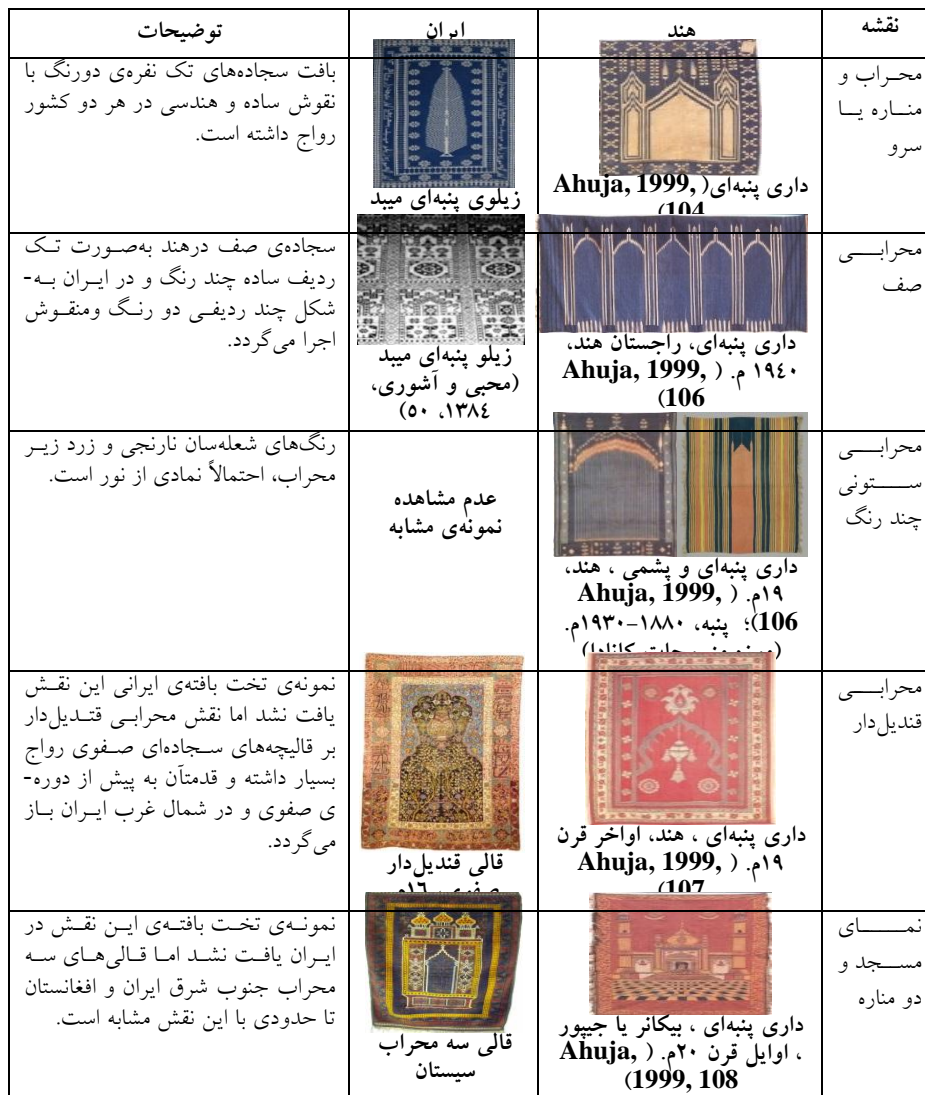 نقشه
هند
ایران
توضیحات
محراب و
مناره یا
سرو
داری پنبه‌ای( Ahuja, 1999,
104)
زیلوی پنبه‌ای میبد
بافت سجاده‌های تک نفره‌ی دورنگ با
نقوش ساده و هندسی در هر دو کشور
رواج داشته است.
محرابی
صف
داری پنبه‌ای، راجستان هند،
۱۹٤۰ م. ( Ahuja, 1999,
106)
زیلو پنبه‌ای میبد
(محبی و آشوری،
۱۳۸٤، ۵۰)
سجاده‌ی صف درهند به‌صورت تک
ردیف ساده چند رنگ و در ایران به-
شکل چند ردیفی دو رنگ ومنقوش
اجرا می‌گردد.
محرابی
ستونی
چند رنگ
داری پنبه‌ای و پشمی ، هند،
۱۹م. ( Ahuja, 1999,
106)؛ پنبه، ۱۸۸۰-۱۹۳۰م.
عدم مشاهده
نمونه‌ی مشابه
رنگ‌های شعله‌سان نارنجی و زرد زیر
محراب، احتمالاً نمادی از نور است.
محرابی
قندیل‌دار
داری پنبه‌ای ، هند، اواخر قرن
۱۹م. ( Ahuja, 1999,
107
قالی قندیل‌دار
نمونه‌ی تخت بافته‌ی ایرانی این نقش
یافت نشد اما نقش محرابی قتدیل‌دار
بر قالیچه‌های سجاده‌ای صفوی رواج
بسیار داشته و قدمتآن به پیش از دوره-
ی صفوی و در شمال غرب ایران باز
می‌گردد.
نمای
مسجد و
دو مناره
داری پنبه‌ای ، بیکانر یا جیپور
، اوایل قرن ۲۰م. ( Ahuja,
1999, 108)
قالی سه محراب
سیستان
نمونه‌ی تخت بافته‌ی این نقش در
ایران یافت نشد اما قالی‌های سه
محراب جنوب شرق ایران و افغانستان
تا حدودی با این نقش مشابه است.